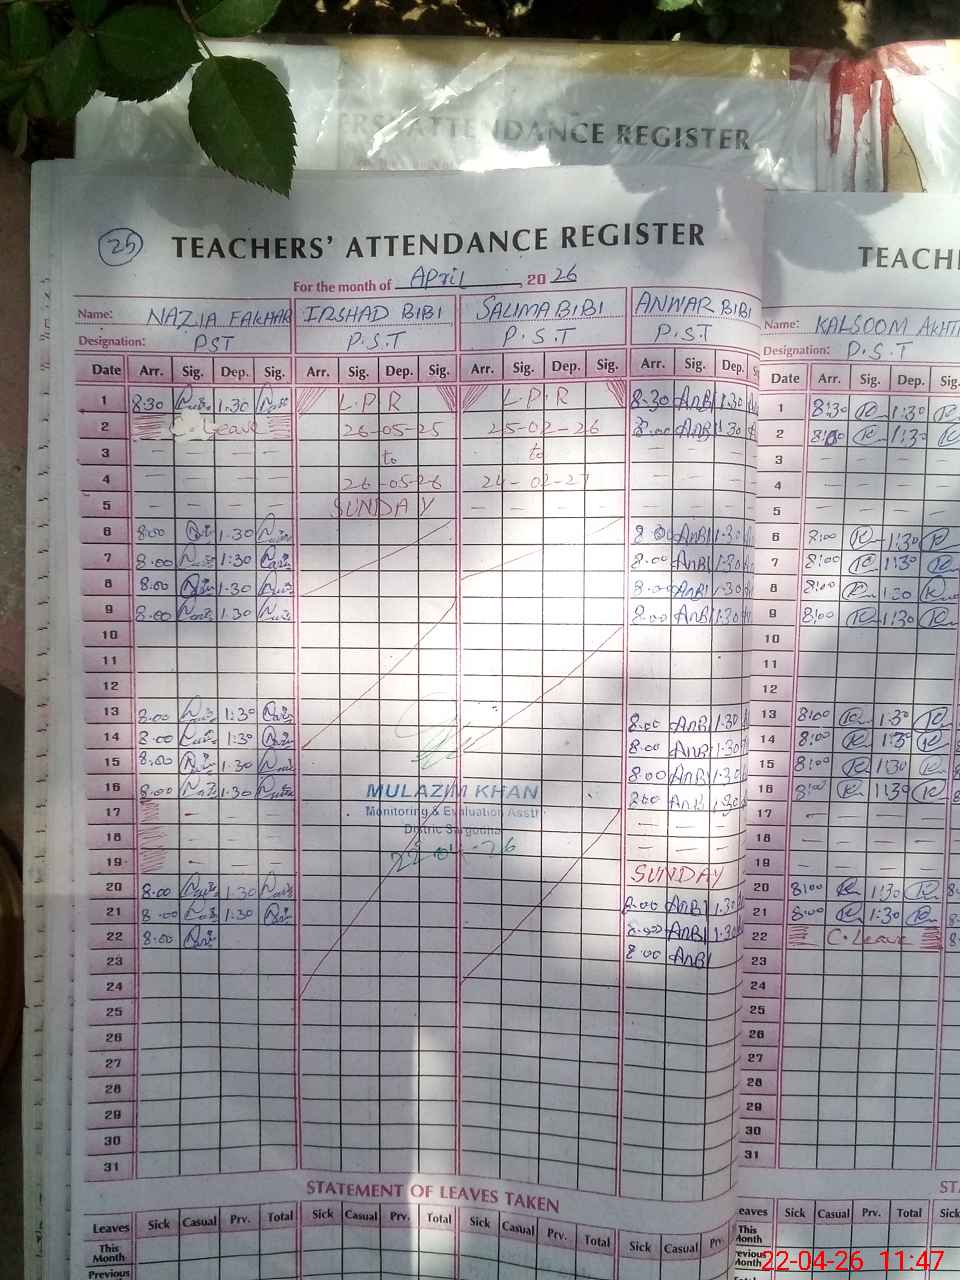 TEACHERS' ATTENDANCE REGISTER
25
TEACHERS' ATTENDANCE REGISTER
For the month of April, 2026
Name: NAZIA FAKHAR IRSHAD BIBI SALIMA BIBI ANWAR BIBI
Designation: PST P.S.T P.S.T P.S.T
Date Arr. Sig. Dep. Sig. Arr. Sig. Dep. Sig. Arr. Sig. Dep. Sig. Arr. Sig. Dep.
1 8:30 1.30 L.P.R L.P.R 8.30 AnBi 1.30
2 C. Leave 26-05-25 25-02-26 8.00 AnBi 1.30
3 to to
4 26-05-26 24-02-27
5 SUNDAY
6 8:00 1.30 8.00 AnBi 1.30
7 8.00 1:30 8.00 AnBi 1.30
8 8.00 1.30 8.00 AnBi 1.30
9 8.00 1.30 8.00 AnBi 1.30
10
11
12
13 8.00 1:30 8.00 AnBi 1.30
14 8.00 1:30 8.00 AnBi 1.30
15 8.00 1.30 8.00 AnBi 1.30
16 8.00 1.30 8.00 AnBi 1.30
MULAZIM KHAN
17
Monitoring & Evaluation Asstt
18
19 SUNDAY
20 8.00 1.30 8.00 AnBi 1.30
21 8.00 1.30 8.00 AnBi 1.30
22 8.00 8.00 AnBi
23
24
25
26
27
28
29
30
31
STATEMENT OF LEAVES TAKEN
Leaves Sick Casual Prv. Total Sick Casual Prv. Total Sick Casual Prv. Total Sick Casual
This Month
Previous
TEACHE
Name: KALSOOM AKHT
Designation: P.S.T
Date Arr. Sig. Dep. Sig.
1 8:30 1:30
2 8:00 1:30
3
4
5
6 8:00 1:30
7 8:00 1:30
8 8:00 1:30
9 8:00 1:30
10
11
12
13 8:00 1:30
14 8:00 1:30
15 8:00 1:30
16 8:00 1:30
17
18
19
20 8:00 1:30
21 8:00 1:30
22 C. Leave
23
24
25
26
27
28
29
30
31
Sick Casual Prv. Total Sick
22-04-26 11:47